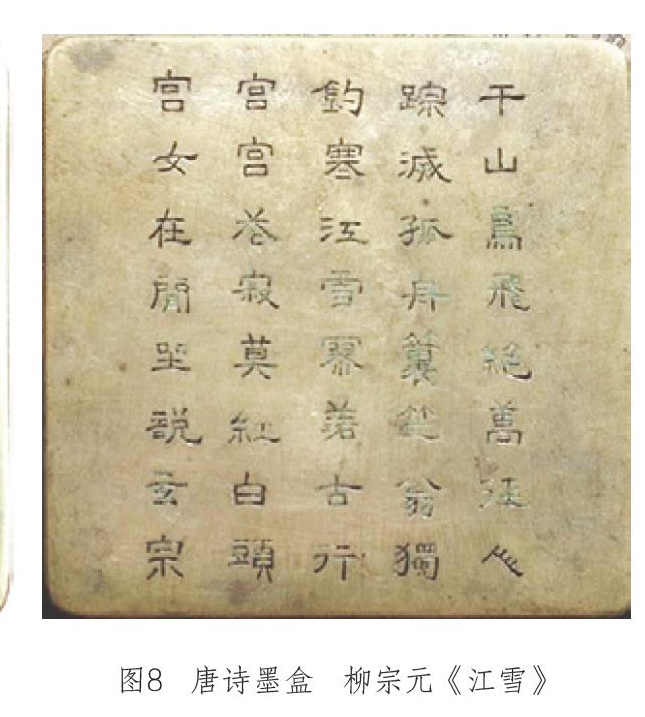 千山鳥飛絕萬徑人
踪滅孤舟簑笠翁獨
釣寒江雪寥落古行
宮宮花寂莫紅白頭
宮女在閒坐説玄宗
图8 唐诗墨盒 柳宗元《江雪》